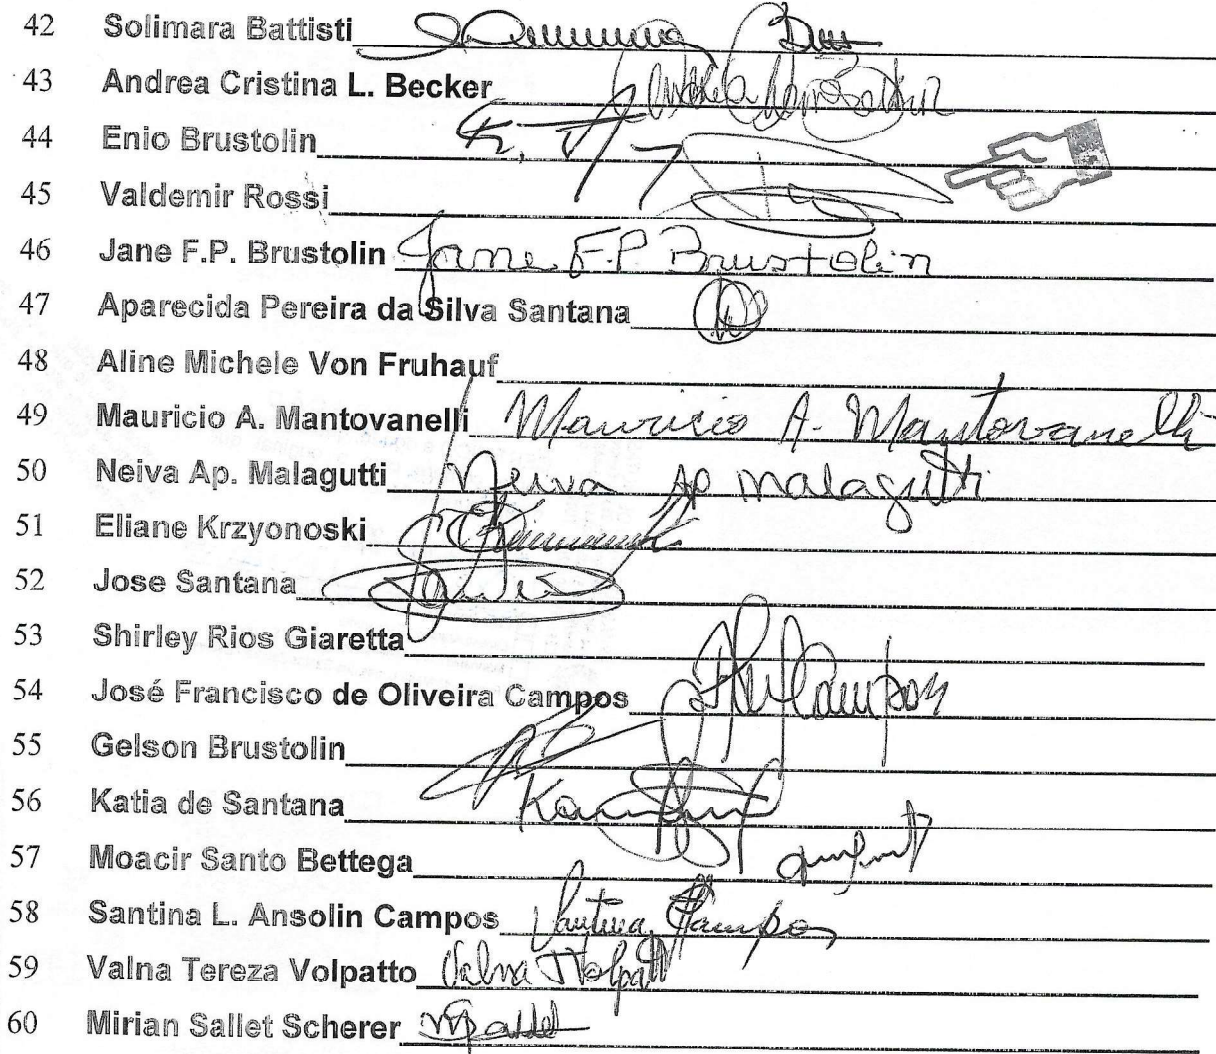 42 Solimara Battisti
43 Andrea Cristina L. Becker
44 Enio Brustolin
45 Valdemir Rossi
46 Jane F.P. Brustolin Jane F.P Brustolin
47 Aparecida Pereira da Silva Santana
48 Aline Michele Von Fruhauf
49 Mauricio A. Mantovanelli Mauricio A. Mantovanelli
50 Neiva Ap. Malagutti Neiva Ap Malagutti
51 Eliane Krzyonoski
52 Jose Santana
53 Shirley Rios Giaretta
54 José Francisco de Oliveira Campos Campos
55 Gelson Brustolin
56 Katia de Santana
57 Moacir Santo Bettega
58 Santina L. Ansolin Campos Santina Campos
59 Valna Tereza Volpatto Valna T Volpatt
60 Mirian Sallet Scherer